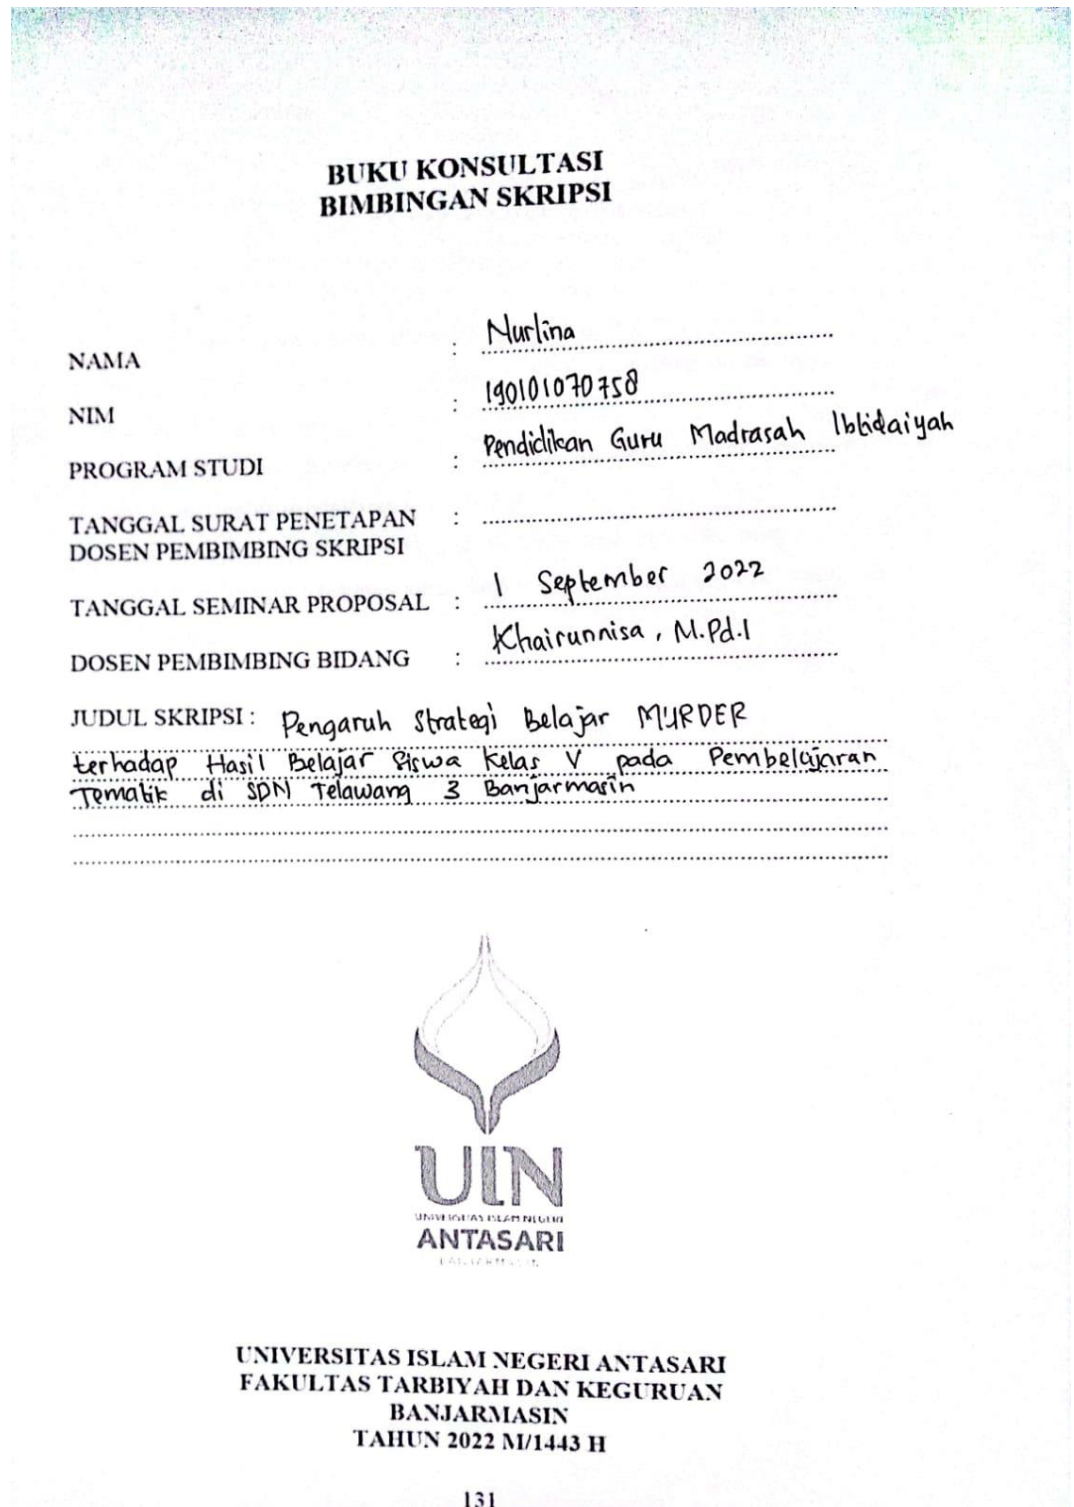 BUKU KONSULTASI
BIMBINGAN SKRIPSI
NAMA : Nurlina
NIM : 190101070758
PROGRAM STUDI : Pendidikan Guru Madrasah Ibtidaiyah
TANGGAL SURAT PENETAPAN : 
DOSEN PEMBIMBING SKRIPSI
TANGGAL SEMINAR PROPOSAL : 1 September 2022
DOSEN PEMBIMBING BIDANG : Khairunnisa, M.Pd.I
JUDUL SKRIPSI : Pengaruh Strategi Belajar MURDER
terhadap Hasil Belajar Siswa Kelas V pada Pembelajaran
Tematik di SDN Telawang 3 Banjarmasin
UIN
UNIVERSITAS ISLAM NEGERI
ANTASARI
BANJARMASIN
UNIVERSITAS ISLAM NEGERI ANTASARI
FAKULTAS TARBIYAH DAN KEGURUAN
BANJARMASIN
TAHUN 2022 M/1443 H
131